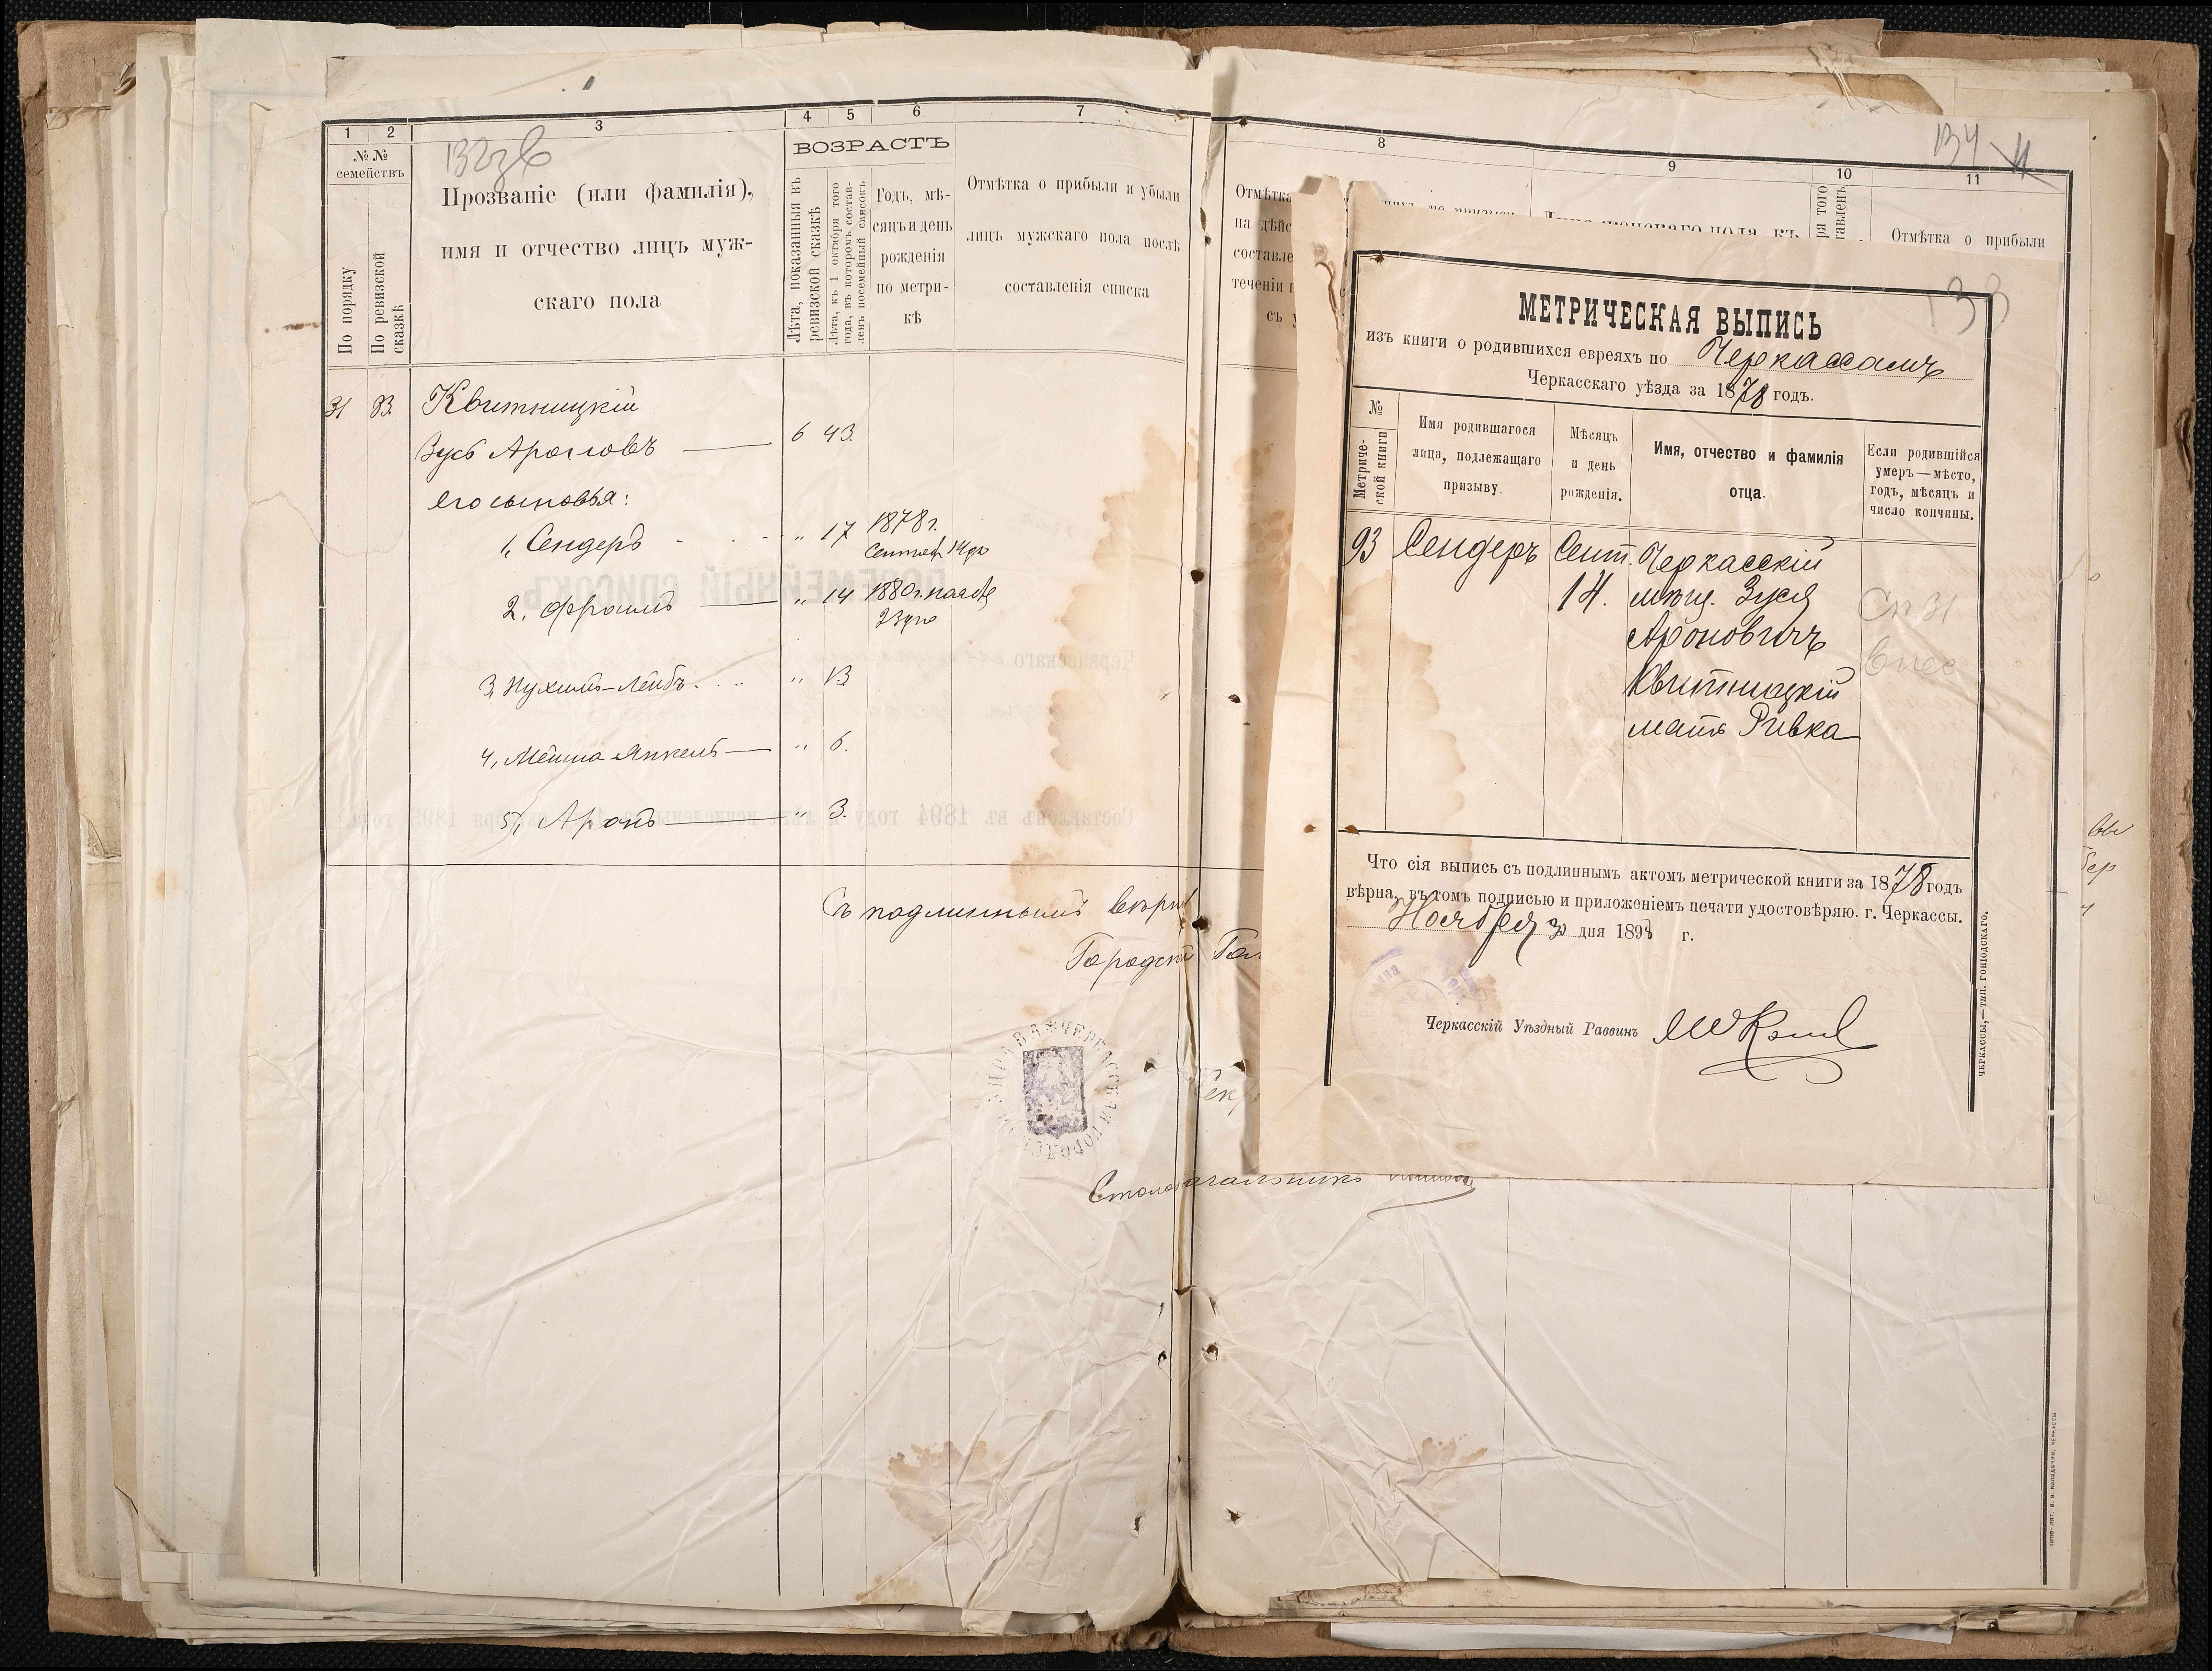 1 2 3 4 5 6 7
132зв
№ № семействъ
По порядку
По ревизской сказкѣ
Прозваніе (или фамилія),
имя и отчество лицъ муж-
скаго пола
ВОЗРАСТЪ
Лѣта, показанныя въ
ревизской сказкѣ
Лѣта, къ 1 октября того
года, въ которомъ состав-
ленъ посемейный списокъ
Годъ, мѣ-
сяцъ и день
рожденія
по метри-
кѣ
Отмѣтка о прибыли и убыли
лицъ мужскаго пола послѣ
составленія списка
31 93. Квитницкій
Зусь Ароновъ 6 43.
его сыновья:
1, Сендеръ „ 17 1878 г.
Сентяб 14 дн
2, Фроимъ „ 14 1880 г.
23 дня
3, Нухимъ-Лейбъ „ 13
4, Мошна Янкель „ 6.
5, Аронъ „ 3.
Съ подлиннымъ вѣрно
Городской Гол
Столоначальникъ
8 9 10 11
134
Отмѣтка
на дѣйс
составле
теченіи
съ у
Отмѣтка о прибыли
133
МЕТРИЧЕСКАЯ ВЫПИСЬ
изъ книги о родившихся евреяхъ по Черкассамъ
Черкасскаго уѣзда за 1878 годъ.
№
Метриче-
ской книги
Имя родившагося
лица, подлежащаго
призыву.
Мѣсяцъ
и день
рожденія.
Имя, отчество и фамилія
отца.
Если родившійся
умеръ—мѣсто,
годъ, мѣсяцъ и
число кончины.
93 Сендеръ Сент. Черкасскій
14. мѣщ. Зуся
Ароновичъ
Квитницкій
мать Ривка
Сп 31
Что сія выпись съ подлиннымъ актомъ метрической книги за 1878 годъ
вѣрна, въ томъ подписью и приложеніемъ печати удостовѣряю. г. Черкассы.
Ноября 30 дня 1898 г.
Черкасскій Уѣздный Раввинъ
ЧЕРКАССЫ,—ТИП. ГОНІОДСКАГО.